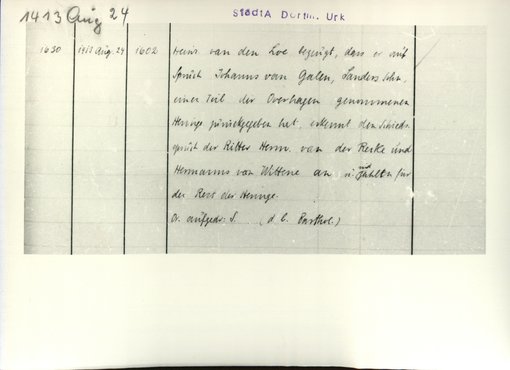 1413 Aug 24
StadtA Dortm. Urk
1630 1413 Aug. 24 1602 Heinr. van den Loe bezeugt, dass er auf
Spruch Johanns van Galen, Sanders Sohn,
einen Teil der Overhagen genommenen
Hennge zurückgegeben hat, erkennt den Schieds
spruch der Ritter Herm. van der Recke und
Hermanns van Wittene an u. für
den Rest der Hennge.
O. aufgedr. S. (d b. Barthol.)